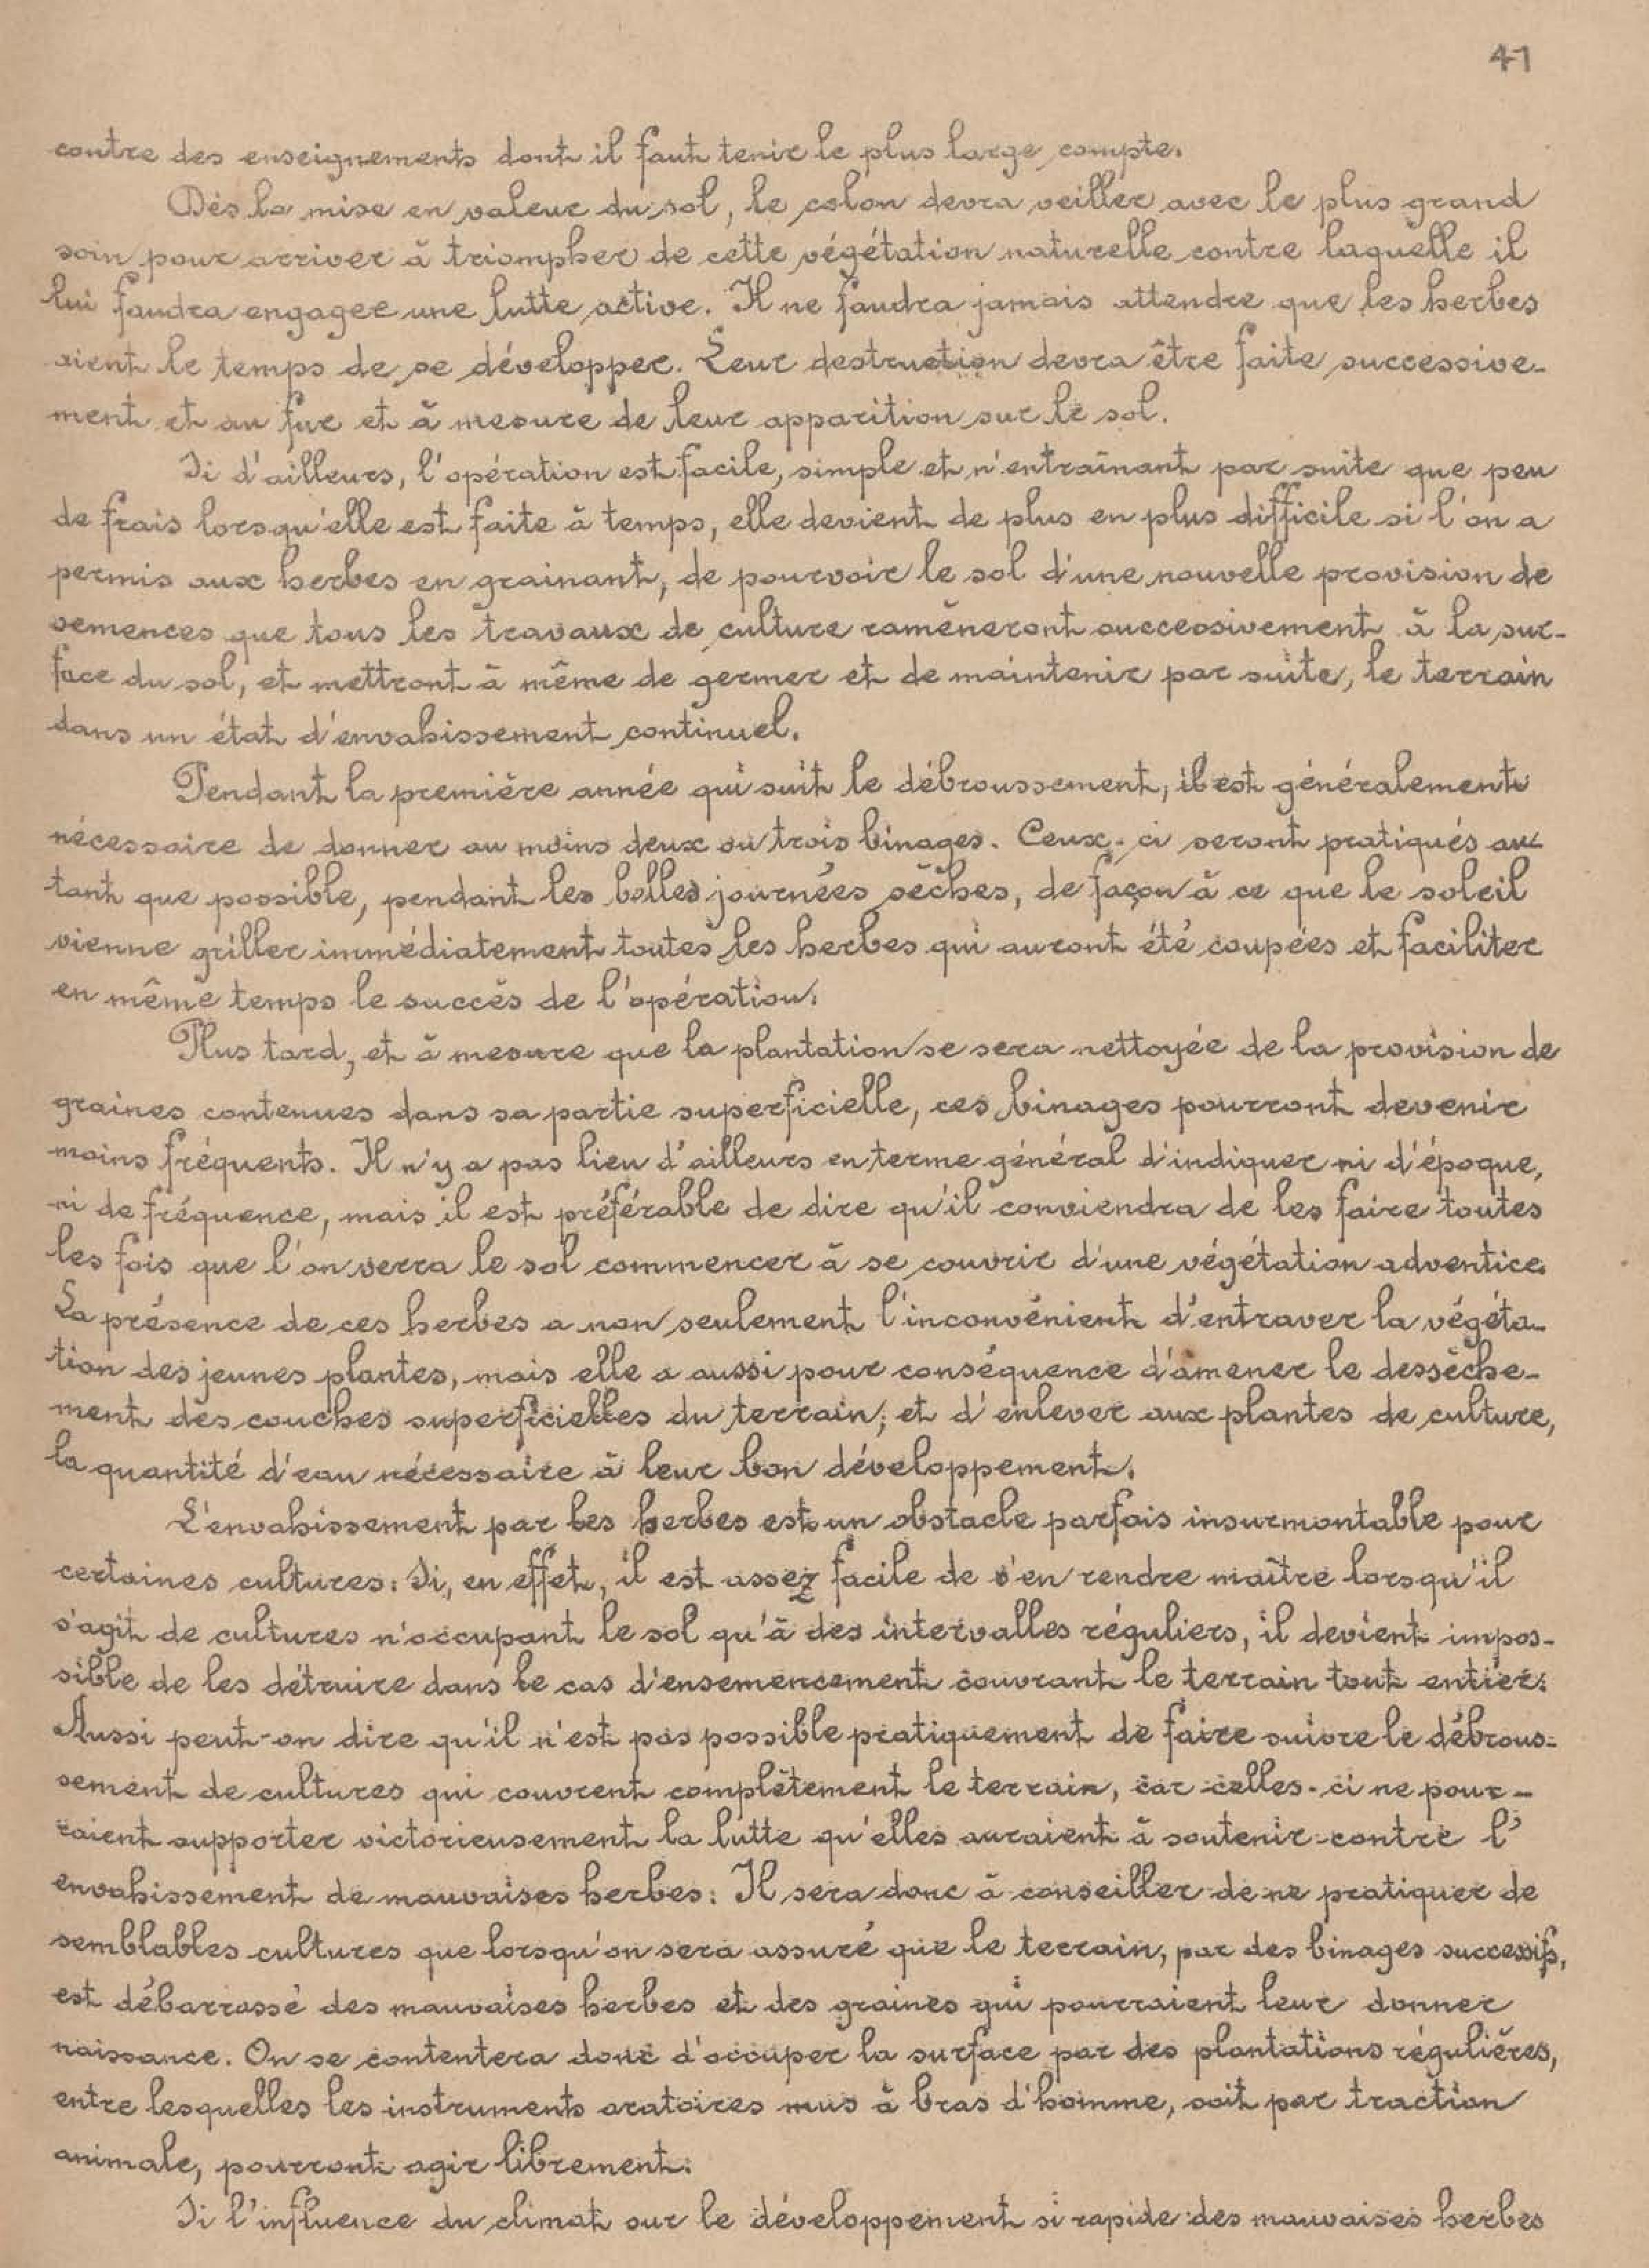 41
contre des enseignements dont il faut tenir le plus large compte.
Dès la mise en valeur du sol, le colon devra veiller avec le plus grand
soin pour arriver à triompher de cette végétation naturelle contre laquelle il
lui faudra engager une lutte active. Il ne faudra jamais attendre que les herbes
aient le temps de se développer. Leur destruction devra être faite successive-
ment et au fur et à mesure de leur apparition sur le sol.
Si d'ailleurs, l'opération est facile, simple et n'entraînant par suite que peu
de frais lorsqu'elle est faite à temps, elle devient de plus en plus difficile si l'on a
permis aux herbes en grainant, de pourvoir le sol d'une nouvelle provision de
semences que tous les travaux de culture ramèneront successivement à la sur-
face du sol, et mettront à même de germer et de maintenir par suite, le terrain
dans un état d'envahissement continuel.
Pendant la première année qui suit le débroussement, il est généralement
nécessaire de donner au moins deux ou trois binages. Ceux-ci seront pratiqués au-
tant que possible, pendant les belles journées sèches, de façon à ce que le soleil
vienne griller immédiatement toutes les herbes qui auront été coupées et faciliter
en même temps le succès de l'opération.
Plus tard, et à mesure que la plantation se sera nettoyée de la provision de
graines contenues dans sa partie superficielle, ces binages pourront devenir
moins fréquents. Il n'y a pas lieu d'ailleurs en terme général d'indiquer ni d'époque,
ni de fréquence, mais il est préférable de dire qu'il conviendra de les faire toutes
les fois que l'on verra le sol commencer à se couvrir d'une végétation adventice.
La présence de ces herbes a non seulement l'inconvénient d'entraver la végéta-
tion des jeunes plantes, mais elle a aussi pour conséquence d'amener le dessèche-
ment des couches superficielles du terrain; et d'enlever aux plantes de culture,
la quantité d'eau nécessaire à leur bon développement.
L'envahissement par les herbes est un obstacle parfois insurmontable pour
certaines cultures: Si, en effet, il est assez facile de s'en rendre maître lorsqu'il
s'agit de cultures n'occupant le sol qu'à des intervalles réguliers, il devient impos-
sible de les détruire dans le cas d'ensemencement couvrant le terrain tout entier.
Aussi peut-on dire qu'il n'est pas possible pratiquement de faire suivre le débrous-
sement de cultures qui couvrent complètement le terrain, car celles-ci ne pour-
raient supporter victorieusement la lutte qu'elles auraient à soutenir contre l'
envahissement de mauvaises herbes: Il sera donc à conseiller de ne pratiquer de
semblables cultures que lorsqu'on sera assuré que le terrain, par des binages successifs,
est débarrassé des mauvaises herbes et des graines qui pourraient leur donner
naissance. On se contentera donc d'occuper la surface par des plantations régulières,
entre lesquelles les instruments aratoires mus à bras d'homme, soit par traction
animale, pourront agir librement.
Si l'influence du climat sur le développement si rapide des mauvaises herbes